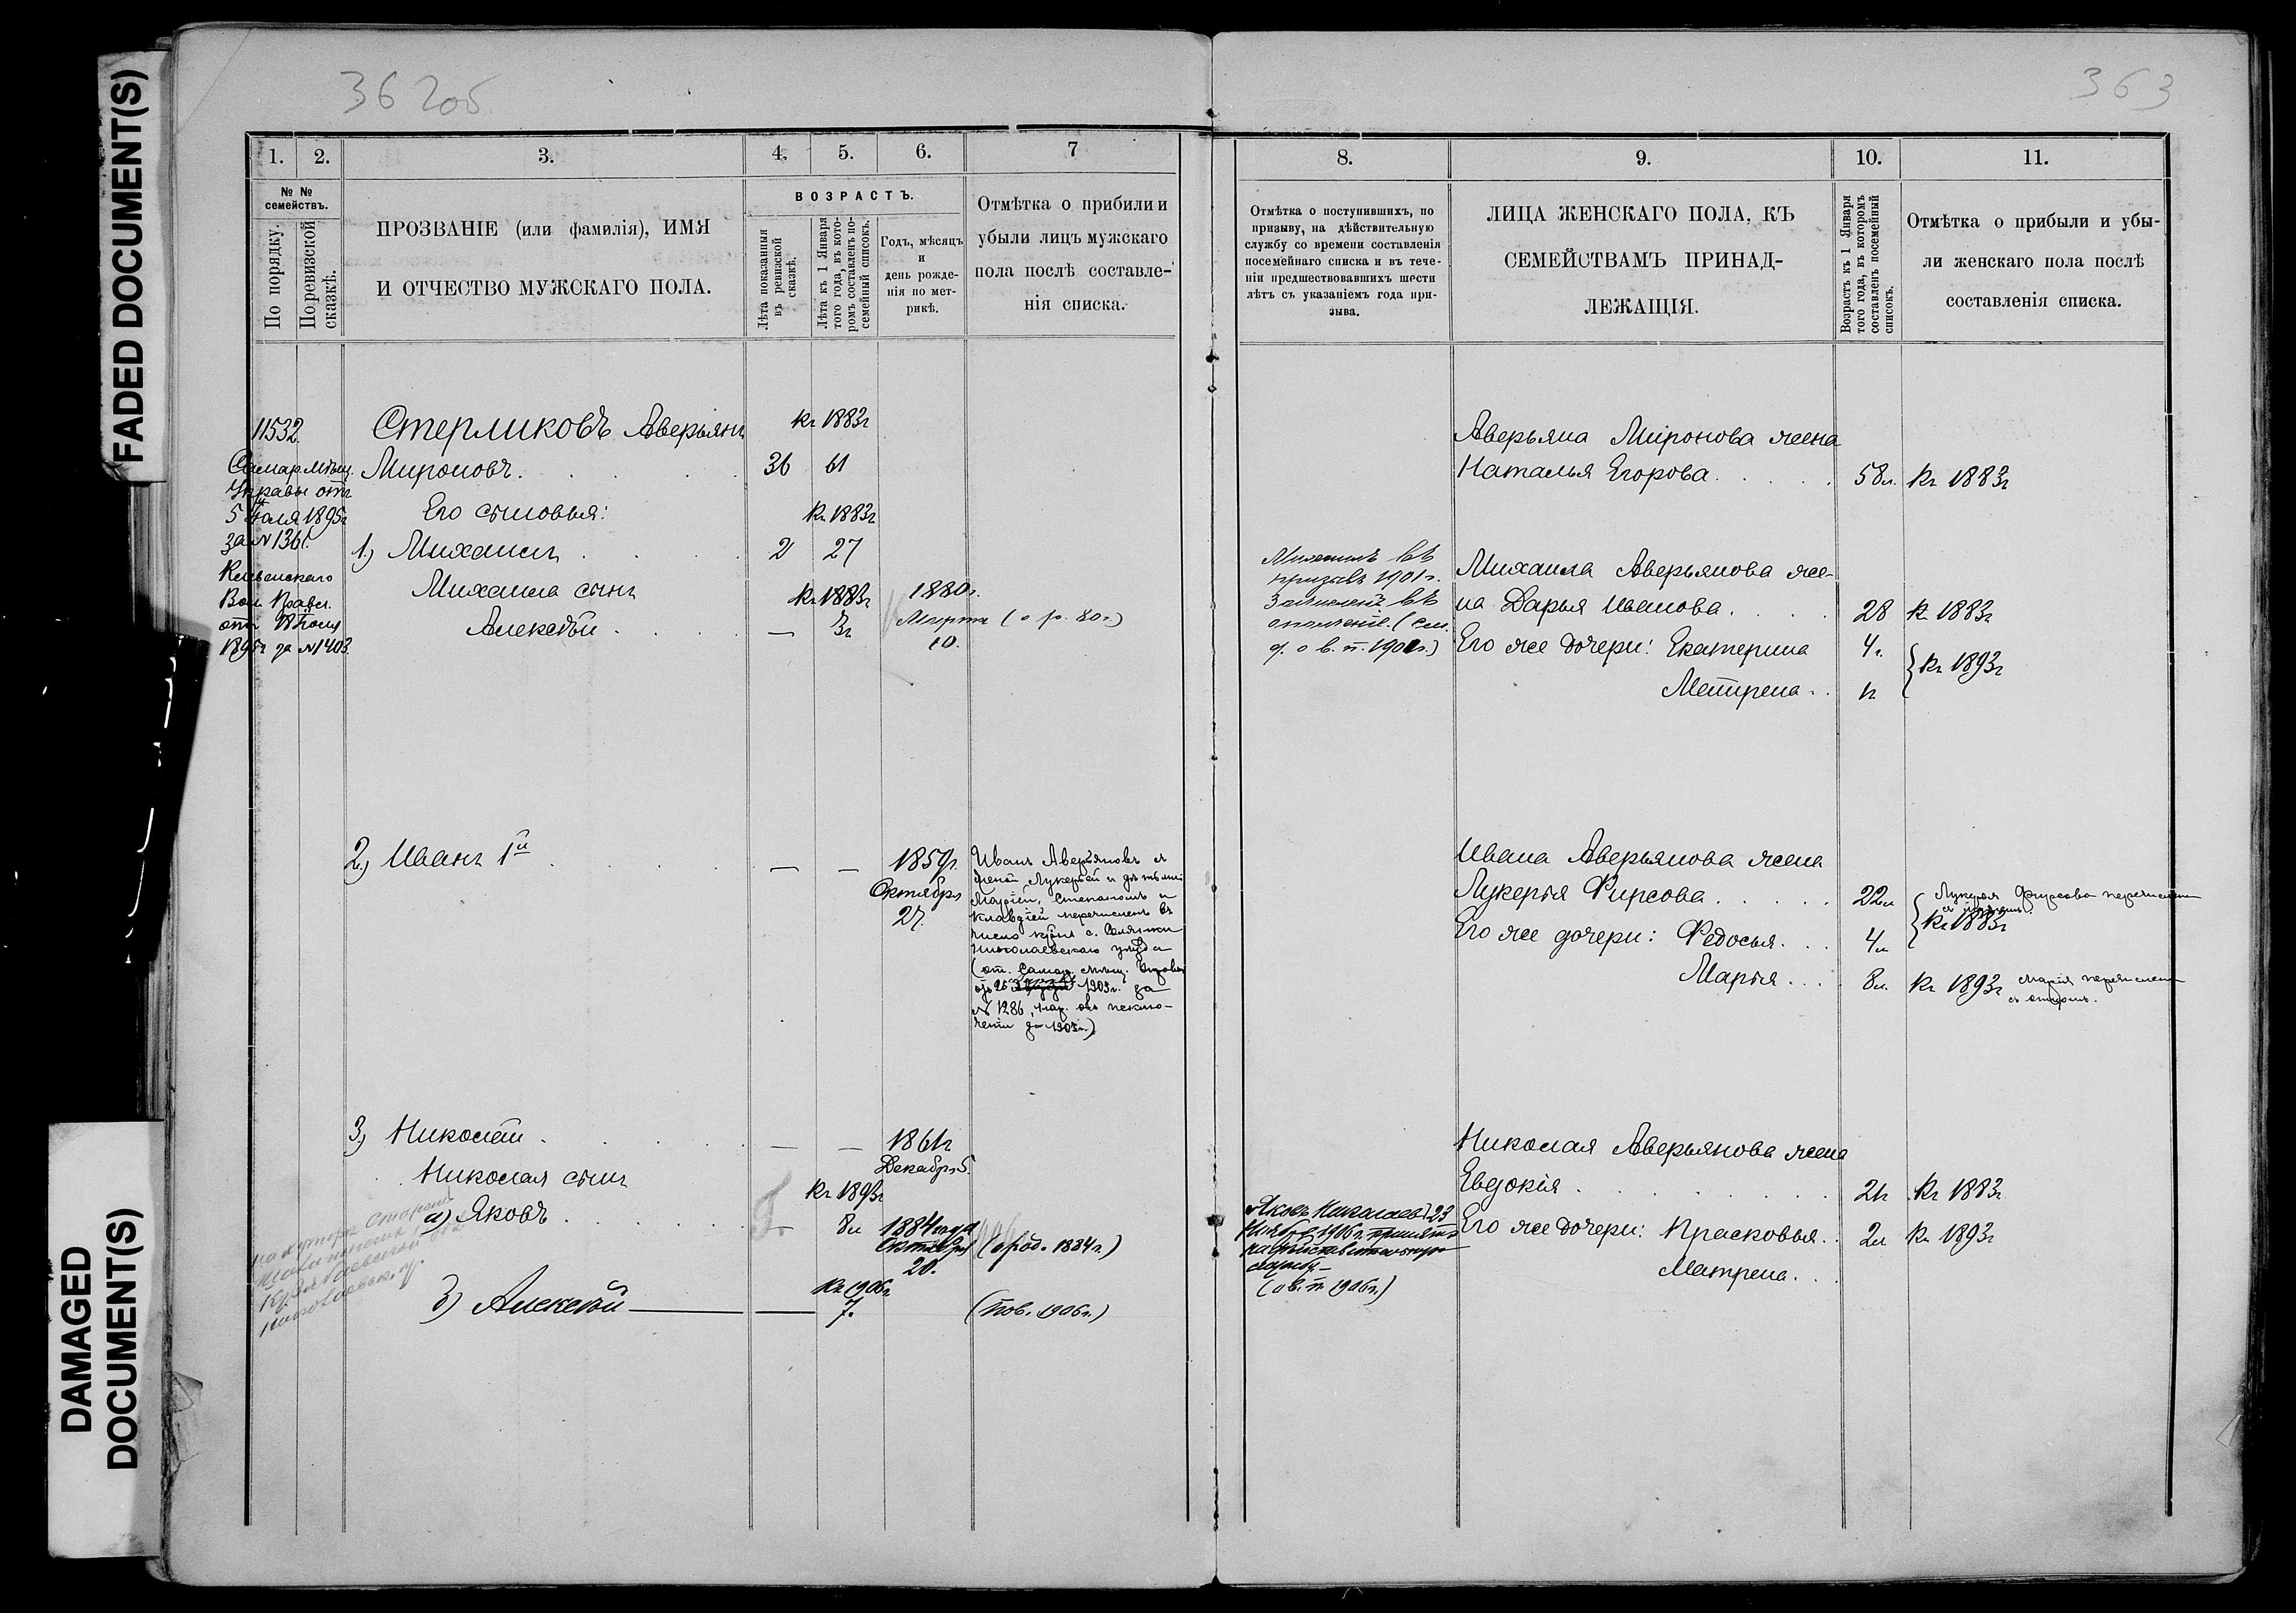 FADED DOCUMENT(S)
DAMAGED
DOCUMENT(S)
362об
1.
2.
3.
4.
5.
6.
7
№ №
семействъ.
По порядку.
По ревизской
сказкѣ.
ПРОЗВАНІЕ (или фамилія), ИМЯ
И ОТЧЕСТВО МУЖСКАГО ПОЛА.
ВОЗРАСТЪ.
Лѣта показанныя
въ ревизской
сказкѣ.
Лѣта къ 1 Января
того года, въ кото-
ромъ составленъ по-
семейный списокъ.
Годъ, мѣсяцъ
и
день рожде-
нія по мет-
рикѣ.
Отмѣтка о прибыли и
убыли лицъ мужскаго
пола послѣ составле-
нія списка.
11532.
Самар. мѣщ.
Управы отъ
5 Іюля 1895г
за № 1361.
Вол. Правл.
отъ
1895г за №1403.
Стерликовъ Аверьянъ
Мироновъ.
36
61
къ 1883г
Его сыновья:
къ 1883г
1) Михаилъ
2
27
Михаила сынъ
къ 1883г
1880г.
Алексѣй
—
3г
Марта
10.
(о р. 80г.)
2) Иванъ 1й
—
—
1859г.
Октября
27.
Иванъ Аверьяновъ съ
женой Лукерьей и дѣтьми
Маріей, Степаномъ и
Клавдіей перечисленъ въ
число
Николаевскаго уѣзда
(от. Самар. мѣщ. Управы
1903г. за
№ 1286, об исклю-
ченіи за 1903г.)
3) Николай
—
—
1861г
Декабря 5.
Николая сынъ
къ 1893г
а) Яковъ
—
8л
1884 года
Октября
20.
(о род. 1884г.)
къ 1906г
3) Алексѣй
7.
(пов. 1906г.)
363
8.
9.
10.
11.
Отмѣтка о поступившихъ, по
призыву, на дѣйствительную
службу со времени составленія
посемейнаго списка и въ тече-
ніи предшествовавшихъ шести
лѣтъ съ указаніемъ года при-
зыва.
ЛИЦА ЖЕНСКАГО ПОЛА, КЪ
СЕМЕЙСТВАМЪ ПРИНАД-
ЛЕЖАЩІЯ.
Возрастъ къ 1 Января
того года, въ которомъ
составленъ посемейный
списокъ.
Отмѣтка о прибыли и убы-
ли женскаго пола послѣ
составленія списка.
Аверьяна Миронова жена
Наталья Егорова
58л.
къ 1883г
Михаилъ въ
призывъ 1901г.
Зачисленъ въ
ополченіе. (см.
д. о в. п. 1901г.)
Михаила Аверьянова же-
на Дарья Иванова
28
къ 1883г
Его же дочери: Екатерина
4г.
Матрена
1г
къ 1893г
Ивана Аверьянова жена
Лукерья Фирсова
22л
Лукерья Фирсова перечислена
съ мужемъ.
къ 1883г
Его же дочери: Федосья
4л
Марья
8л.
къ 1893г
Марія перечислена
съ отцомъ.
Николая Аверьянова жена
Евдокія
21г
къ 1883г
Яковъ Николаевъ 23
Ноября 1906г. принятъ
на дѣйствительную
службу.
(о в. п. 1906г.)
Его же дочери: Прасковья
2л
къ 1893г
Матрена